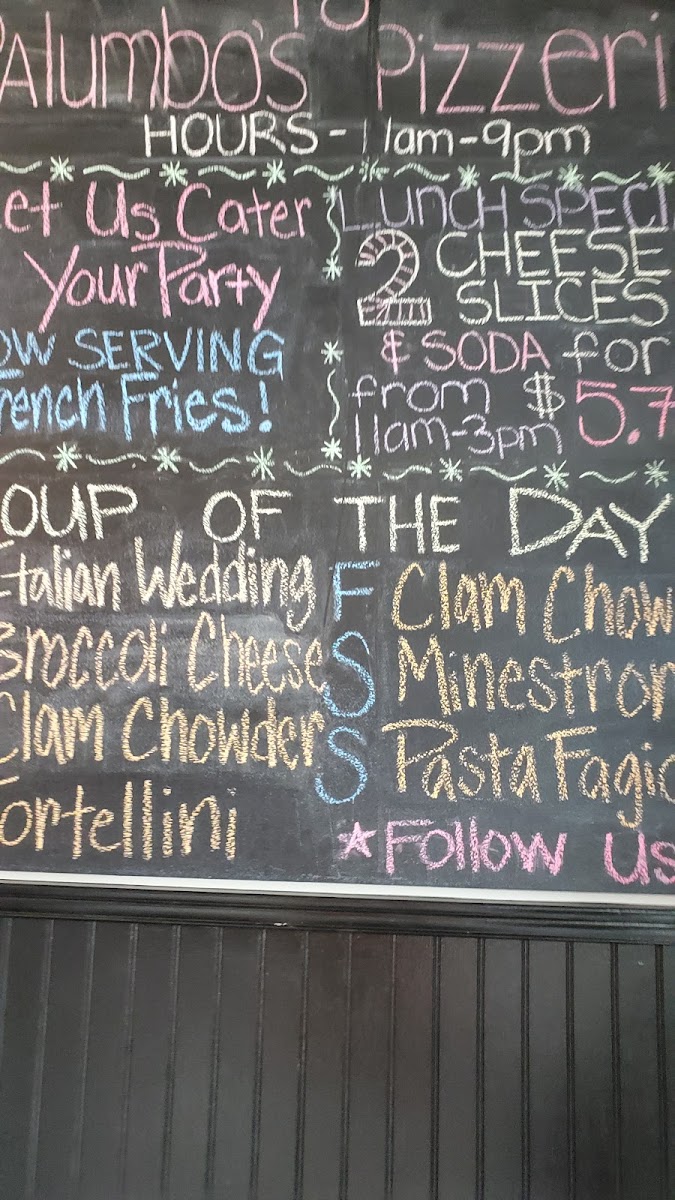 To
Palumbo's Pizzeri
HOURS - 11am-9pm
Let Us Cater
Your Party
OW SERVING
French Fries!
LUNCH SPECI
2 CHEESE
SLICES
& SODA for
from $5.7
11am-3pm
OUP OF THE DAY
Italian Wedding
Broccoli Cheese
Clam Chowder
Tortellini
F Clam Chow
S Minestron
S Pasta Fagio
*Follow us